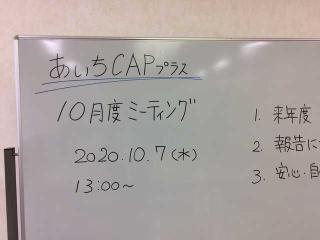 あいちCAPプラス
10月度ミーティング
2020.10.7(水)
13:00~
1. 来年度
2. 報告に
3. 安心・自